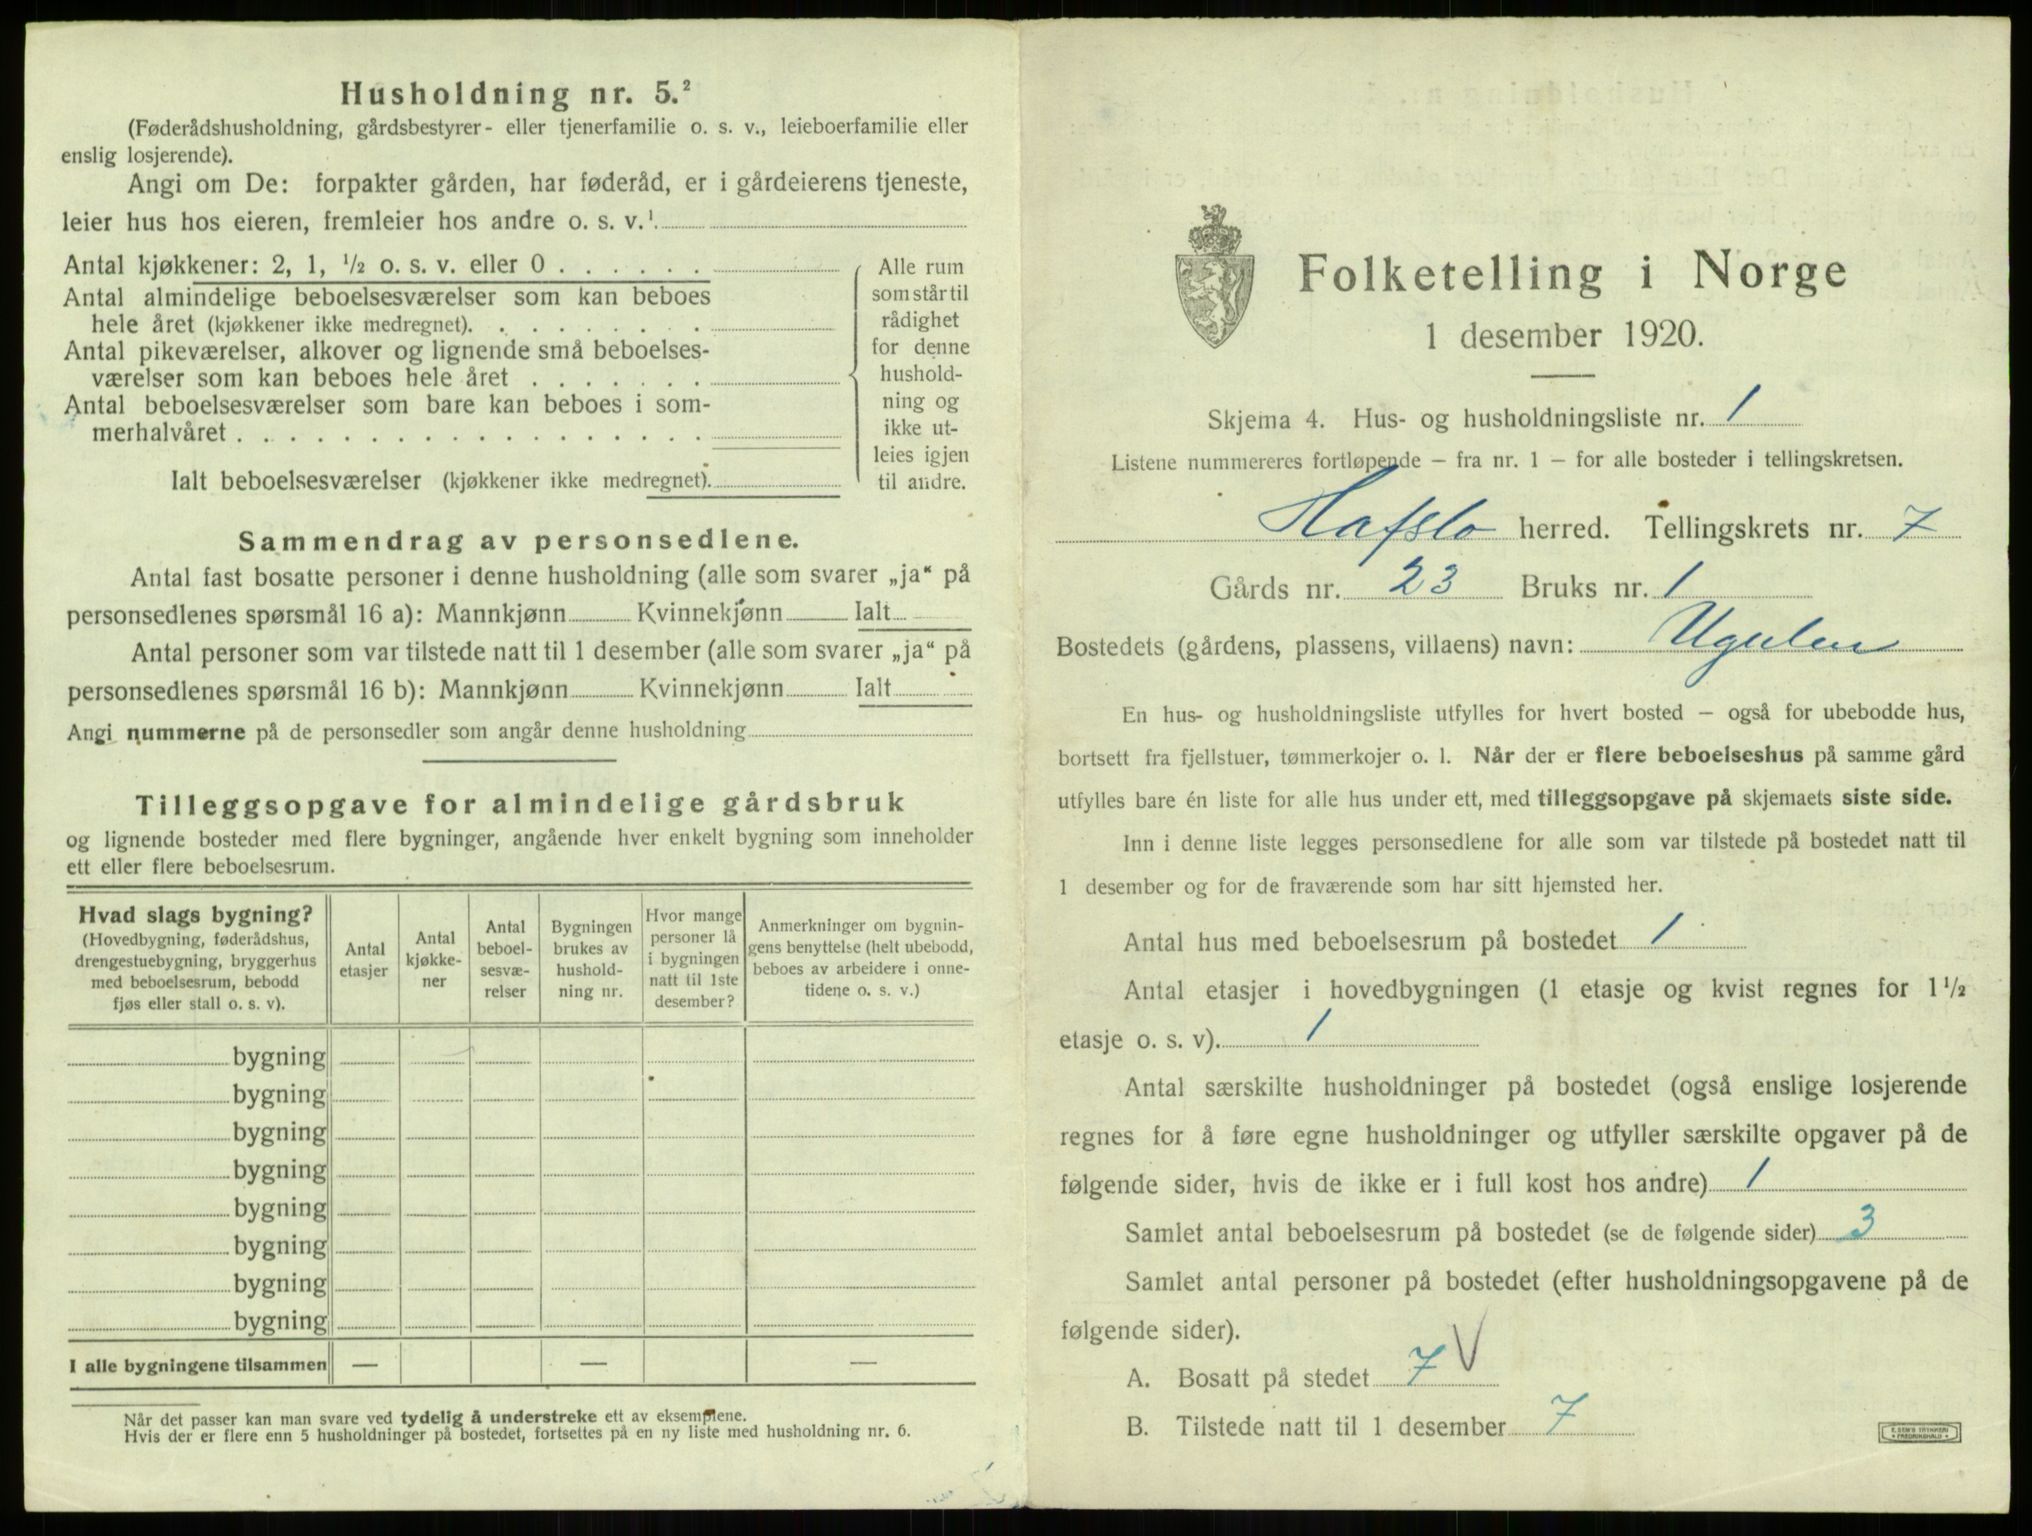 Husholdning nr. 5.²
(Føderådshusholdning, gårdsbestyrer- eller tjenerfamilie o. s. v., leieboerfamilie eller
enslig losjerende).
Angi om De: forpakter gården, har føderåd, er i gårdeierens tjeneste,
leier hus hos eieren, fremleier hos andre o. s. v.¹
Antal kjøkkener: 2, 1, ½ o. s. v. eller 0 . . . . . .
Antal almindelige beboelsesværelser som kan beboes
hele året (kjøkkener ikke medregnet). . . . . . . . .
Antal pikeværelser, alkover og lignende små beboelses-
værelser som kan beboes hele året . . . . . . .
Antal beboelsesværelser som bare kan beboes i som-
merhalvåret . . . . . . . . . . . . . . . . . .
Ialt beboelsesværelser (kjøkkener ikke medregnet).
Alle rum
som står til
rådighet
for denne
hushold-
ning og
ikke ut-
leies igjen
til andre.
Sammendrag av personsedlene.
Antal fast bosatte personer i denne husholdning (alle som svarer „ja“ på
personsedlenes spørsmål 16 a): Mannkjønn Kvinnekjønn Ialt
Antal personer som var tilstede natt til 1 desember (alle som svarer „ja“ på
personsedlenes spørsmål 16 b): Mannkjønn Kvinnekjønn Ialt
Angi nummerne på de personsedler som angår denne husholdning
Tilleggsopgave for almindelige gårdsbruk
og lignende bosteder med flere bygninger, angående hver enkelt bygning som inneholder
ett eller flere beboelsesrum.
Hvad slags bygning?
(Hovedbygning, føderådshus,
drengestuebygning, bryggerhus
med beboelsesrum, bebodd
fjøs eller stall o. s. v).
Antal
etasjer
Antal
kjøkke-
ner
Antal
beboel-
sesvæ-
relser
Bygningen
brukes av
hushold-
ning nr.
Hvor mange
personer lå
i bygningen
natt til 1ste
desember?
Anmerkninger om bygnin-
gens benyttelse (helt ubebodd,
beboes av arbeidere i onne-
tidene o. s. v.)
bygning
bygning
bygning
bygning
bygning
bygning
bygning
bygning
I alle bygningene tilsammen — — —
Når det passer kan man svare ved tydelig å understreke ett av eksemplene.
Hvis der er flere enn 5 husholdninger på bostedet, fortsettes på en ny liste med husholdning nr. 6.
Folketelling i Norge
1 desember 1920.
Skjema 4. Hus- og husholdningsliste nr. 1
Listene nummereres fortløpende – fra nr. 1 – for alle bosteder i tellingskretsen.
Hafslo herred. Tellingskrets nr. 7
Gårds nr. 23 Bruks nr. 1
Bostedets (gårdens, plassens, villaens) navn: Ugulen
En hus- og husholdningsliste utfylles for hvert bosted – også for ubebodde hus,
bortsett fra fjellstuer, tømmerkojer o. l. Når der er flere beboelseshus på samme gård
utfylles bare én liste for alle hus under ett, med tilleggsopgave på skjemaets siste side.
Inn i denne liste legges personsedlene for alle som var tilstede på bostedet natt til
1 desember og for de fraværende som har sitt hjemsted her.
Antal hus med beboelsesrum på bostedet 1
Antal etasjer i hovedbygningen (1 etasje og kvist regnes for 1 ½
etasje o. s. v). 1
Antal særskilte husholdninger på bostedet (også enslige losjerende
regnes for å føre egne husholdninger og utfyller særskilte opgaver på de
følgende sider, hvis de ikke er i full kost hos andre) 1
Samlet antal beboelsesrum på bostedet (se de følgende sider) 3
Samlet antal personer på bostedet (efter husholdningsopgavene på de
følgende sider).
A. Bosatt på stedet 7 V
B. Tilstede natt til 1 desember 7
E. SEM'S TRYKKERI
FREDRIKSHALD